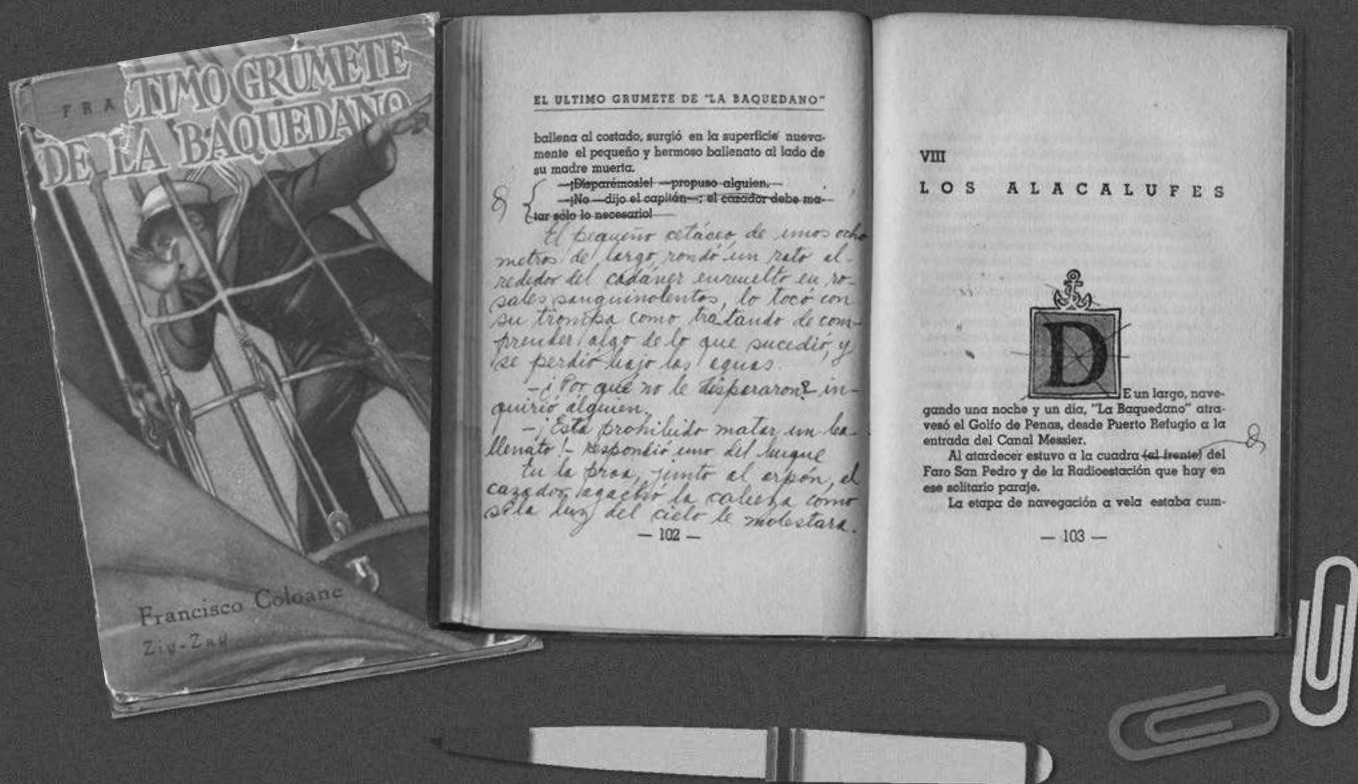 FRA
TIMO GRUMETE
DE LA BAQUEDANO
Francisco Coloane
Zig-Zag
EL ULTIMO GRUMETE DE "LA BAQUEDANO"
ballena al costado, surgió en la superficie nueva-
mente el pequeño y hermoso ballenato al lado de
su madre muerta.
—¡Disparémosle! —propuso alguien.
—¡No —dijo el capitán—; el cazador debe ma-
tar sólo lo necesario!
El pequeño cetáceo, de unos ocho
metros de largo, rondó un rato al-
rededor del cadáver envuelto en ro-
sales sanguinolentos, lo tocó con
su trompa como tratando de com-
prender algo de lo que sucedió y
se perdió bajo las aguas.
—¿Por qué no le dispararon? in-
quirió alguien.
—¡Está prohibido matar un ba-
llenato!— respondió uno del buque
En la proa, junto al arpón, el
cazador agachó la cabeza como
si la luz del cielo le molestara.
— 102 —
VIII
LOS ALACALUFES
D
E un largo, nave-
gando una noche y un día, "La Baquedano" atra-
vesó el Golfo de Penas, desde Puerto Refugio a la
entrada del Canal Messier.
Al atardecer estuvo a la cuadra (al frente) del
Faro San Pedro y de la Radioestación que hay en
ese solitario paraje.
La etapa de navegación a vela estaba cum-
— 103 —